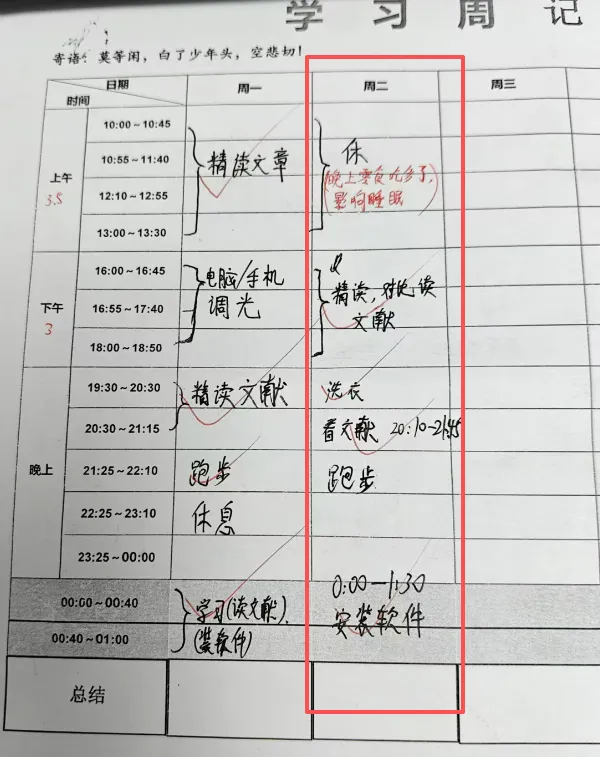 学 习 周 记
寄语：莫等闲，白了少年头，空悲切！
日期
时间
周一
周二
周三
上午
3.5
10:00~10:45
10:55~11:40
12:10~12:55
13:00~13:30
精读文章
休
(晚上零食吃多了,
影响睡眠)
下午
3
16:00~16:45
16:55~17:40
18:00~18:50
电脑/手机
调光
精读,对比读
文献
晚上
19:30~20:30
精读文献
洗衣
20:30~21:15
看文献 20:10-21:45
21:25~22:10
跑步
跑步
22:25~23:10
休息
23:25~00:00
00:00~00:40
00:40~01:00
学习(读文献).
(装软件)
0:00-1:30
安装软件
总结